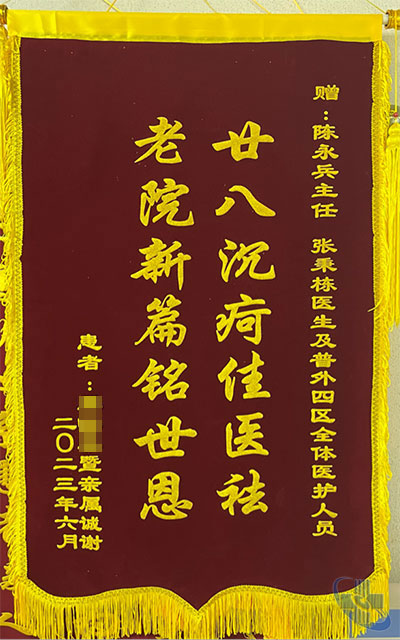 赠：陈永兵主任 张秉栋医生及普外四区全体医护人员
廿八沉疴佳医祛
老院新篇铭世恩
患者：暨亲属诚谢
二〇二三年六月